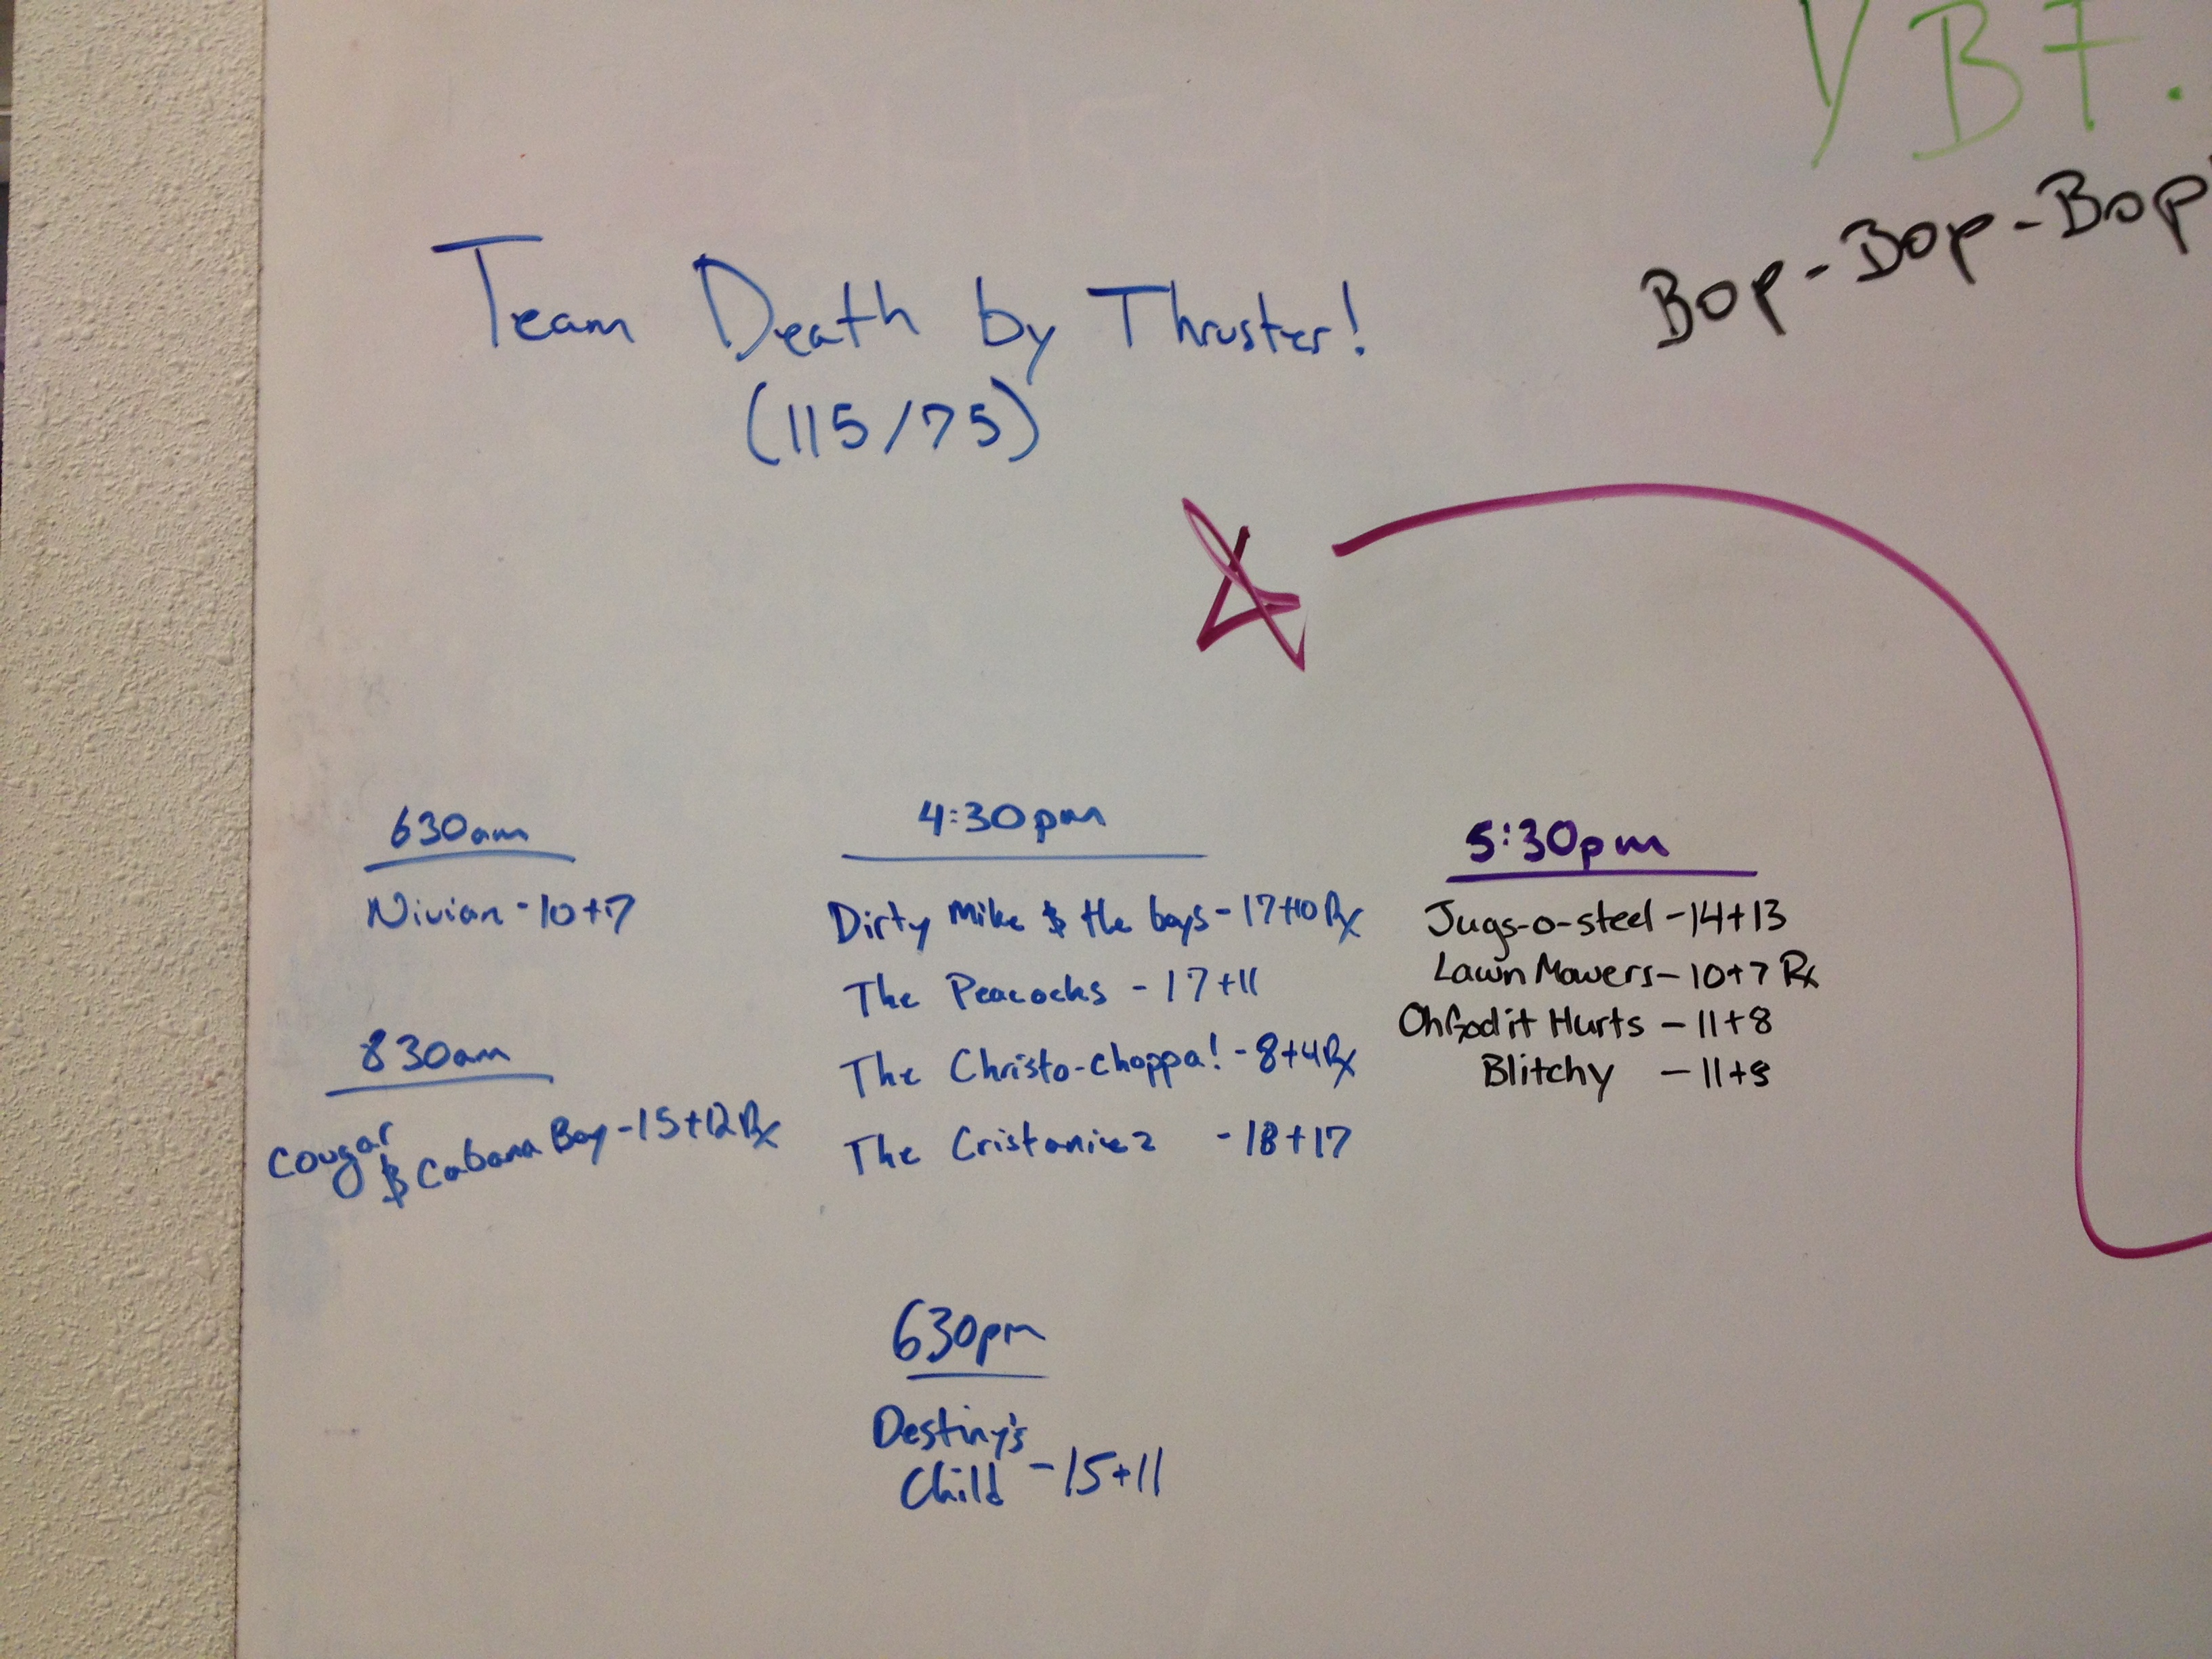 YBF.
Bop-Bop-Bop
Team Death by Thruster!
(115/75)
630am
Nivian - 10+7
830am
Cougar
& Cabana Boy - 15+12 Rx
4:30pm
Dirty Mike & the boys - 17+10 Rx
The Peacocks - 17+11
The Christo-choppa! - 8+4 Rx
The - 18+17
5:30pm
Jugs-o-steel - 14+13
Lawn Mowers - 10+7 Rx
Oh God it Hurts - 11+8
Blitchy - 11+8
630pm
Destiny's
Child - 15+11